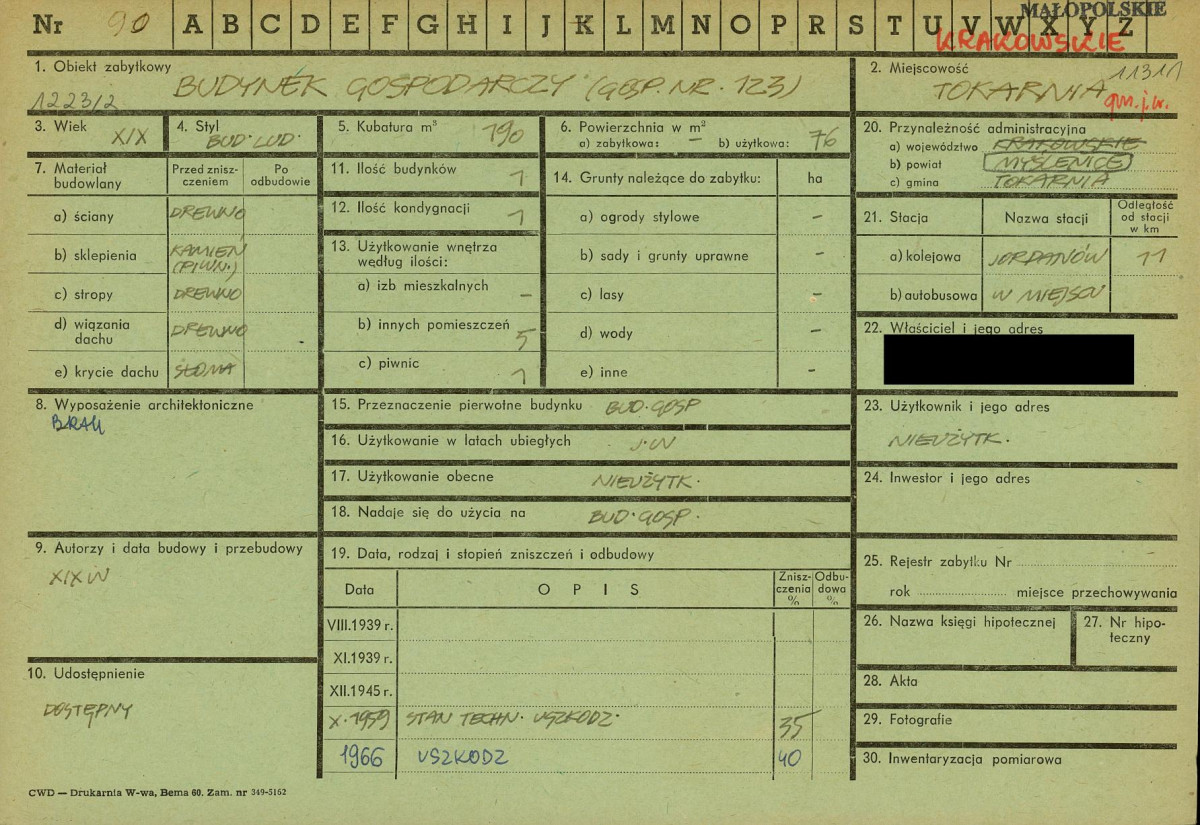 MAŁOPOLSKIE
Nr 90 A B C D E F G H I J K L M N O P R S T U V W X Y Z
KRAKOWSKIE
1. Obiekt zabytkowy
BUDYNEK GOSPODARCZY (GOSP. NR. 123)
1223/2
2. Miejscowość
11311
TOKARNIA gm. j.w.
3. Wiek
XIX
4. Styl
BUD. LUD.
5. Kubatura m³ 190
6. Powierzchnia w m²
a) zabytkowa: — b) użytkowa: 76
20. Przynależność administracyjna
a) województwo KRAKOWSKIE
b) powiat MYŚLENICE
c) gmina TOKARNIA
7. Materiał budowlany
Przed zniszczeniem
Po odbudowie
a) ściany DREWNO
b) sklepienia KAMIEŃ (PIWN.)
c) stropy DREWNO
d) wiązania dachu DREWNO
e) krycie dachu SŁOMA
11. Ilość budynków 1
12. Ilość kondygnacji 1
13. Użytkowanie wnętrza według ilości:
a) izb mieszkalnych –
b) innych pomieszczeń 5
c) piwnic 1
14. Grunty należące do zabytku: ha
a) ogrody stylowe –
b) sady i grunty uprawne –
c) lasy –
d) wody –
e) inne –
21. Stacja
Nazwa stacji
Odległość od stacji w km
a) kolejowa JORDANÓW 11
b) autobusowa W MIEJSCU
22. Właściciel i jego adres
8. Wyposażenie architektoniczne
BRAK
15. Przeznaczenie pierwotne budynku BUD. GOSP
16. Użytkowanie w latach ubiegłych J.W
17. Użytkowanie obecne NIEUŻYTK.
18. Nadaje się do użycia na BUD. GOSP.
23. Użytkownik i jego adres
NIEUŻYTK.
24. Inwestor i jego adres
9. Autorzy i data budowy i przebudowy
XIX W
19. Data, rodzaj i stopień zniszczeń i odbudowy
Data
OPIS
Zniszczenia %
Odbudowa %
VIII.1939 r.
XI.1939 r.
XII.1945 r.
X.1959 STAN TECHN. USZKODZ. 35
1966 USZKODZ 40
25. Rejestr zabytku Nr
rok miejsce przechowywania
26. Nazwa księgi hipotecznej
27. Nr hipoteczny
10. Udostępnienie
DOSTĘPNY
28. Akta
29. Fotografie
30. Inwentaryzacja pomiarowa
CWD — Drukarnia W-wa, Bema 60. Zam. nr 349-5162